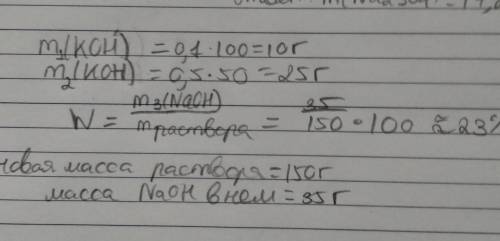 m₁(KOH) = 0,1·100=10г
m₂(KOH) = 0,5·50=25г
W = m₃(NaOH) / mраствора = 35 / 150 · 100 ≈ 23%
новая масса раствора=150г
масса NaOH в нем = 35г